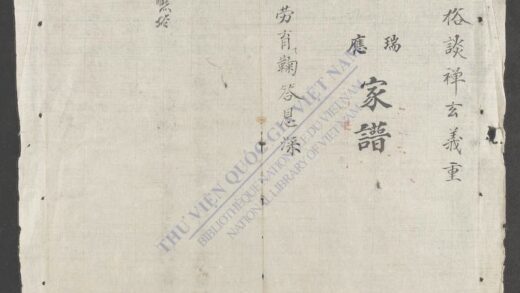 俗談禅玄義重
瑞
應
家譜
勞育鞠答恩深
THƯ VIỆN QUỐC GIA VIỆT NAM
BIBLIOTHÈQUE NATIONALE DU VIETNAM
NATIONAL LIBRARY OF VIETNAM